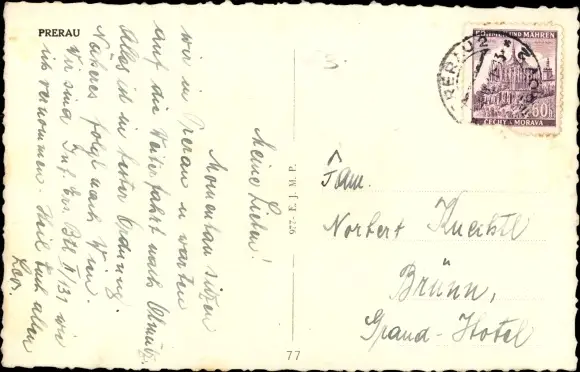 PRERAU
Meine Lieben!
Momentan sitzen
wir in Prerau u warten
auf die Weiterfahrt nach Olmütz
Alles ist in bester Ordnung.
Näheres folgt nach Wien.
Wir sind Inf. Ers. Btl II/131 wie
ich vernommen. Heil Euch allen
975 - K. J. W. P.
77
BÖHMEN UND MÄHREN
60h
ČECHY A MORAVA
PRERAU 2
Fam.
Norbert Knechtl
Brünn,
Grand-Hotel